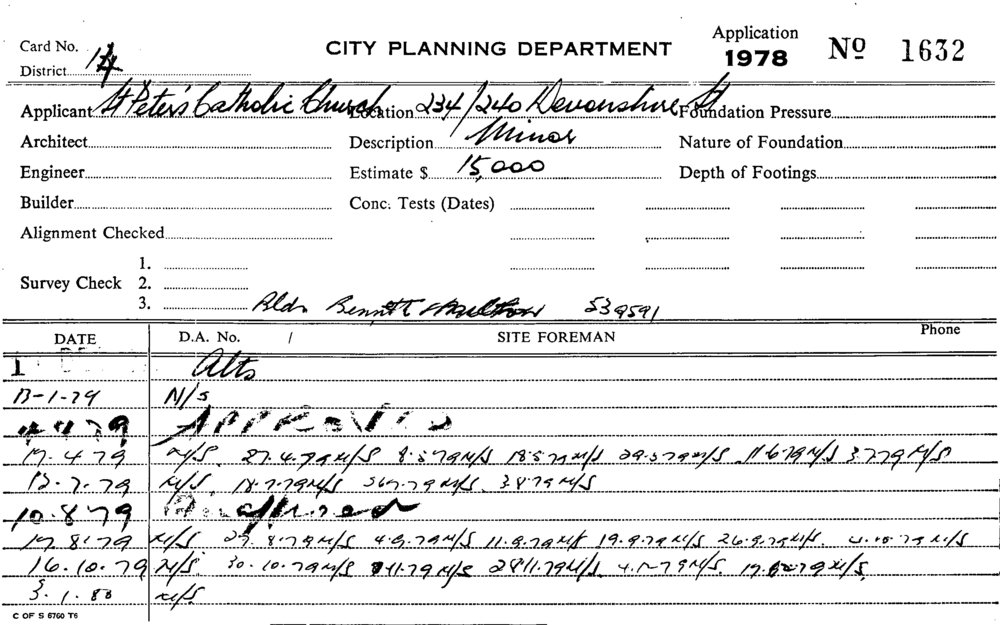 Card No.
CITY PLANNING DEPARTMENT
Application
1978
No 1632
District 14
Applicant St Peter's Catholic Church Location 234/240 Devonshire St Foundation Pressure
Architect Description Minor Nature of Foundation
Engineer Estimate $ 15,000 Depth of Footings
Builder Conc. Tests (Dates)
Alignment Checked
1.
Survey Check 2.
3. Bldr Bennett 539591
DATE D.A. No. / SITE FOREMAN Phone
1 Alts
17-1-79 N/S
4 4 79 APPROVED
17.4.79 N/S 27.4.79 N/S 8.5.79 N/S 18.5.79 N/S 29.5.79 N/S 11.6.79 N/S 3.7.79 N/S
13.7.79 N/S 18.7.79 N/S 3.8.79 N/S
10.8.79
17.8.79 N/S 27.8.79 N/S 4.9.79 N/S 11.9.79 N/S 19.9.79 N/S 26.9.79 N/S 4.10.79 N/S
16.10.79 N/S 30.10.79 N/S 11.79 N/S 28.11.79 N/S 4.12.79 N/S 17.12.79 N/S
3.1.80 N/S
C OF S 6760 T6